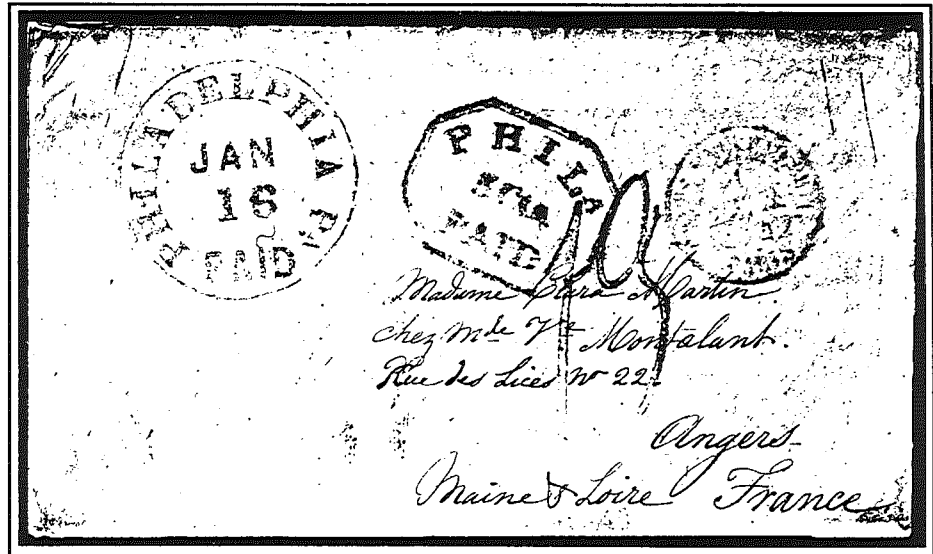 PHILADELPHIA Pa
JAN
16
PAID
PHILA
PAID
19
Madame Clara Martin
chez Mde Ve Montalant.
Rue des Lices No 22.
Angers
Maine & Loire France